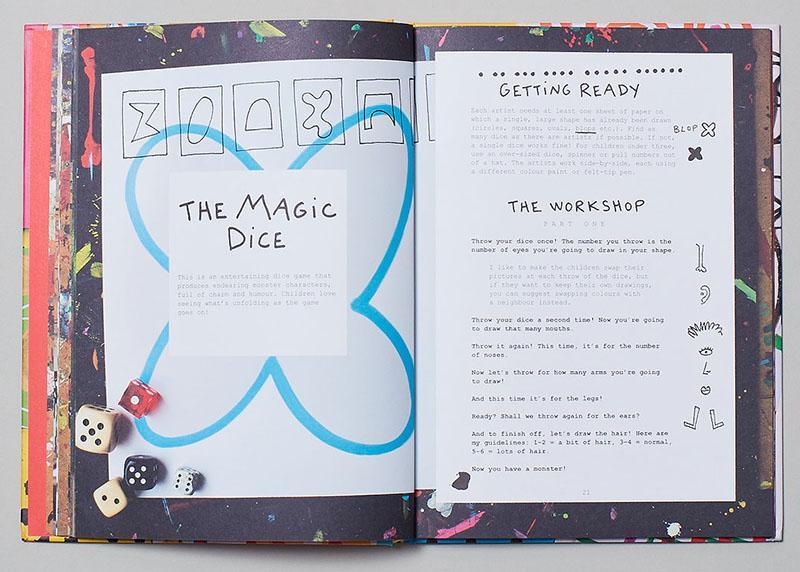 THE MAGIC
DICE
This is an entertaining dice game that
produces endearing monster characters,
full of charm and humour. Children love
seeing what's unfolding as the game
goes on!
GETTING READY
Each artist needs at least one sheet of paper on
which a single, large shape has already been drawn
(circles, squares, ovals, blops etc.). Find as
many dice as there are artists if possible. If not,
a single dice works fine! For children under three,
use an over-sized dice, spinner or pull numbers out
of a hat. The artists work side-by-side, each using
a different colour paint or felt-tip pen.
BLOP
THE WORKSHOP
PART ONE
Throw your dice once! The number you throw is the
number of eyes you're going to draw in your shape.
I like to make the children swap their
pictures at each throw of the dice, but
if they want to keep their own drawings,
you can suggest swapping colours with
a neighbour instead.
Throw your dice a second time! Now you're going
to draw that many mouths.
Throw it again! This time, it's for the number
of noses.
Now let's throw for how many arms you're going
to draw!
And this time it's for the legs!
Ready? Shall we throw again for the ears?
And to finish off, let's draw the hair! Here are
my guidelines: 1-2 = a bit of hair, 3-4 = normal,
5-6 = lots of hair.
Now you have a monster!
21